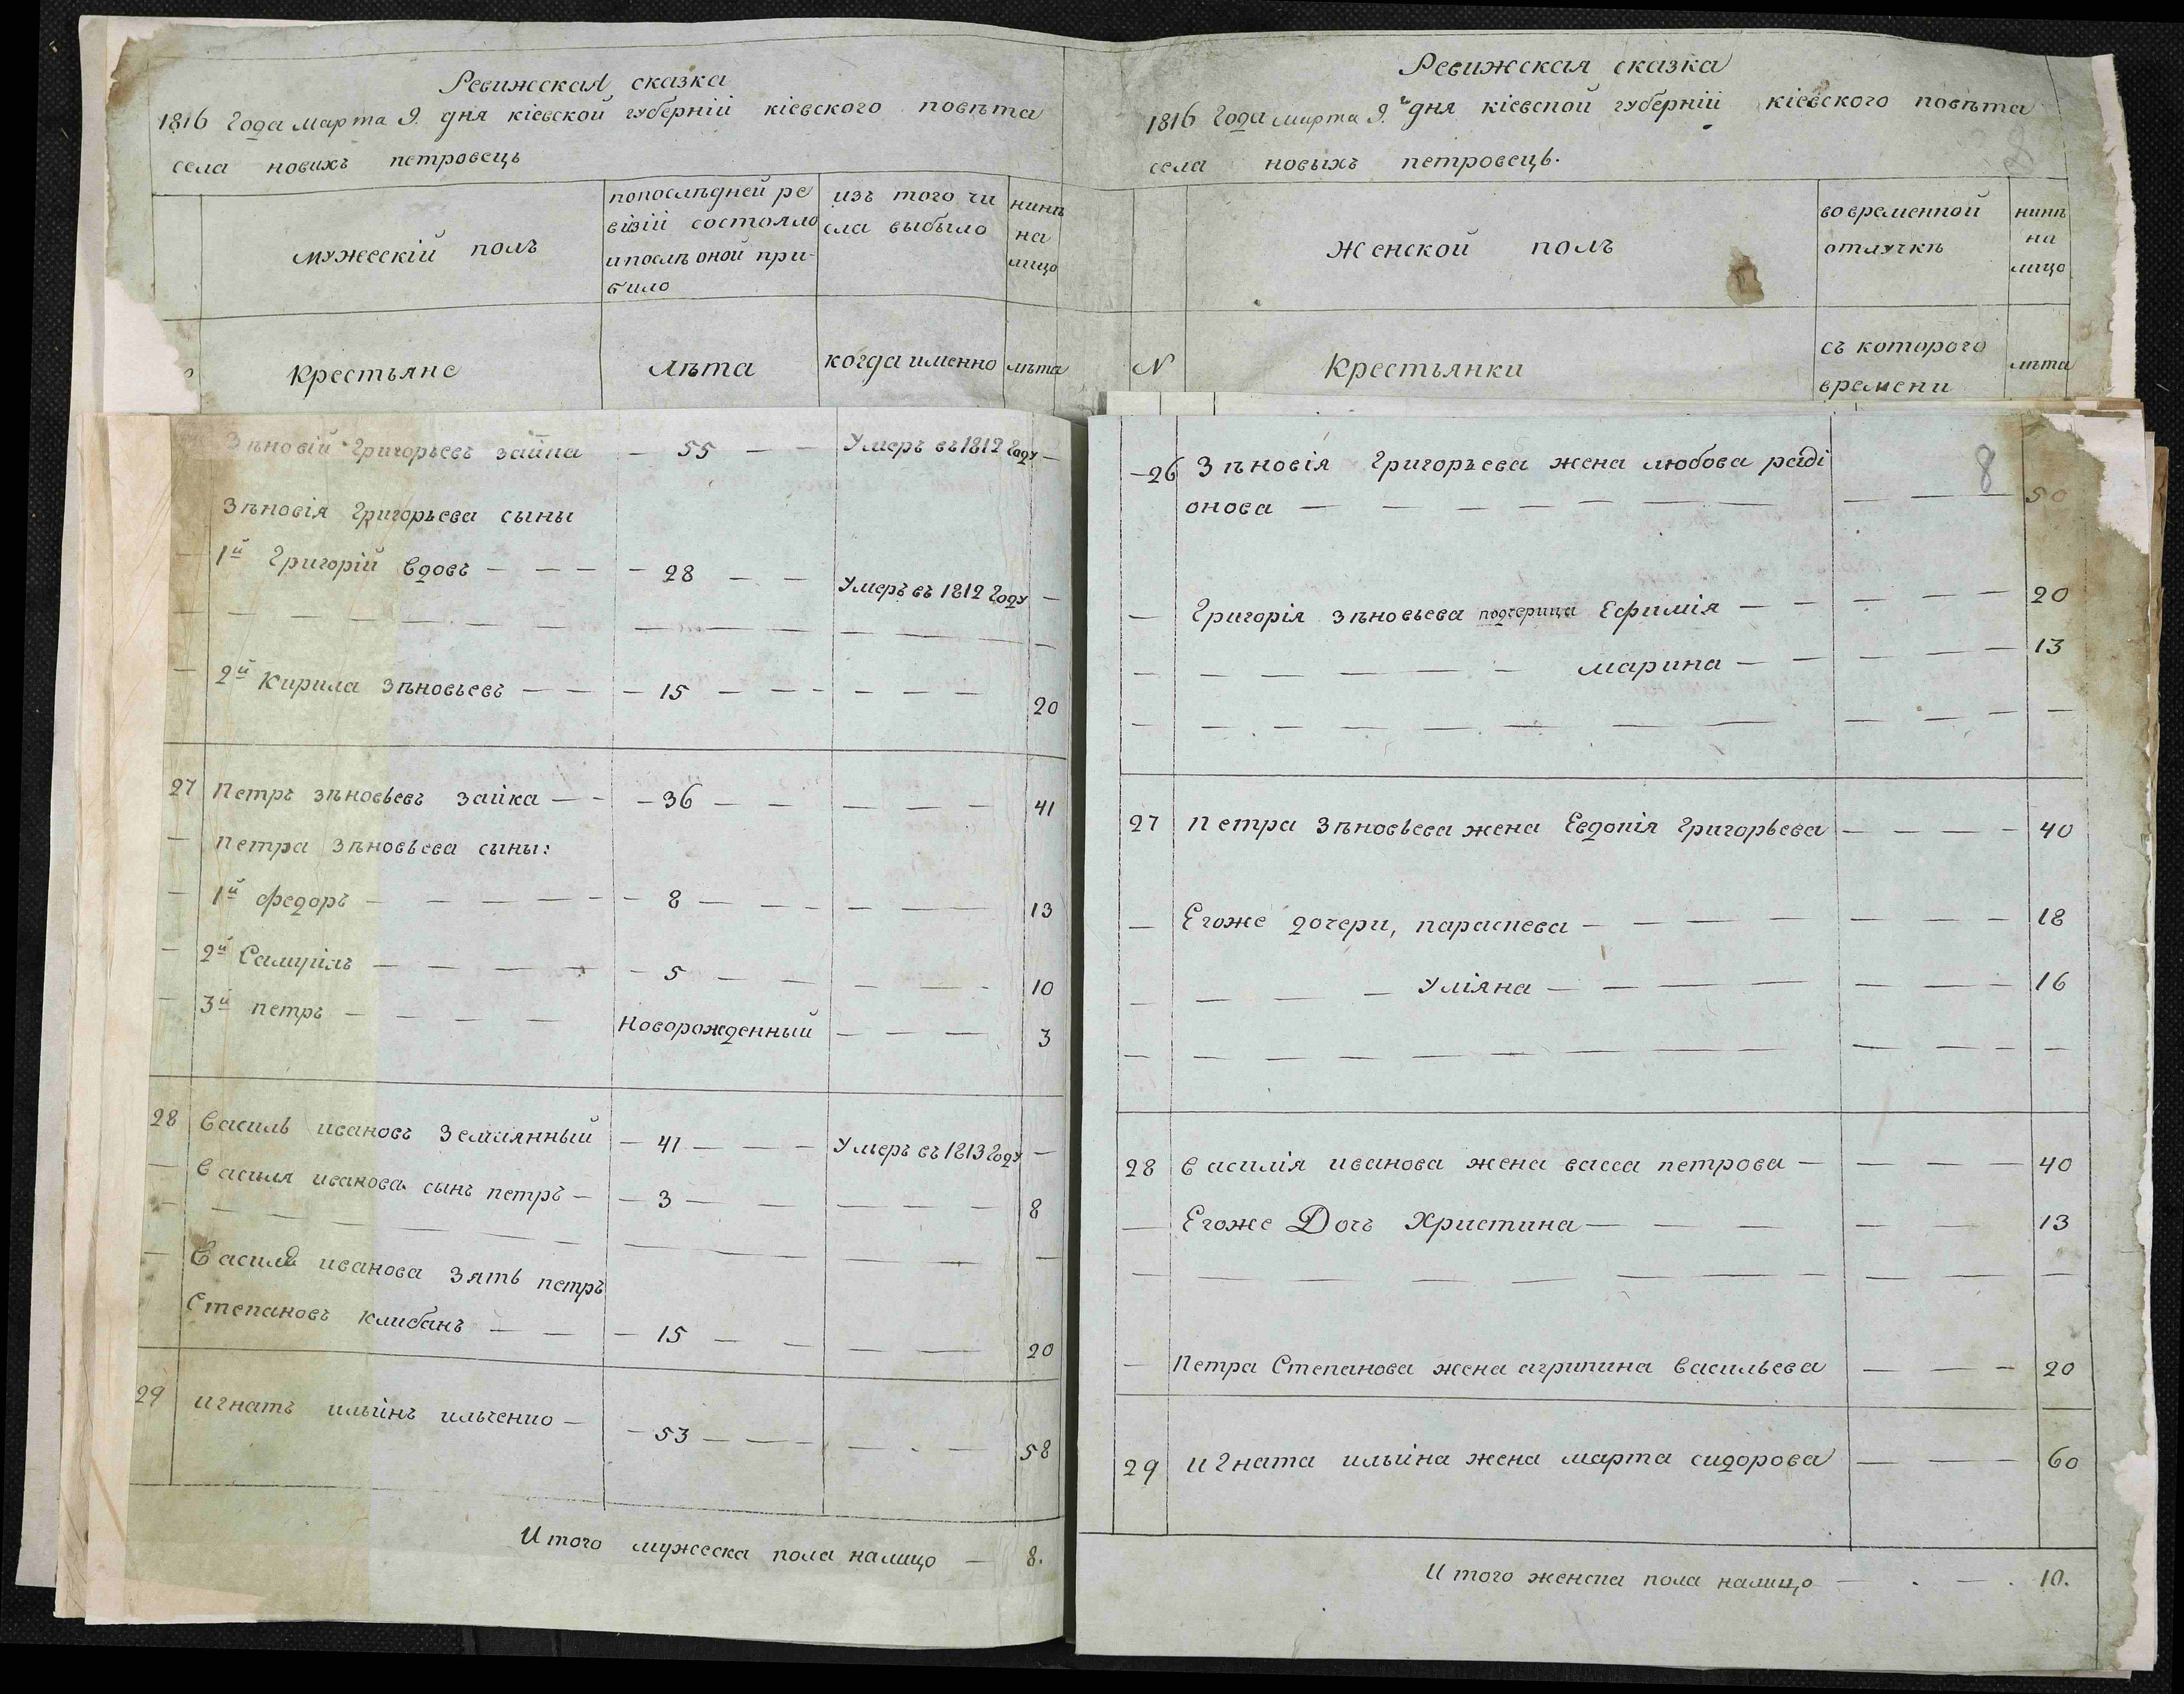 Ревижская сказка
1816 Года марта 9. дня кіевской губерніи кіевского повѣта
села новихъ петровець
мужескій полъ
попослѣдней ре
візіи состояло
ипослѣ оной при-
било
изъ того чи
сла выбыло
нинѣ
на
лицо
крестьяне
лѣта
когда именно
лѣта
Зѣновій Григорьевъ зайка — 55 — — Умеръ въ 1812 Году —
Зѣновія Григорьева сыны
— 1й Григорій Вдовъ — — — — 28 — — Умеръ въ 1812 Году —
— 2й Кирила Зѣновьевъ — — — 15 — — — — — — 20
27 Петръ зѣновьевъ зайка — — — 36 — — — — — 41
— петра Зѣновьева сыны:
— 1й федоръ — — — — — 8 — — — — — 13
— 2й Самуілъ — — — — — 5 — — — — — 10
— 3й петръ — — — — Новорожденный — — — 3
28 Василь ивановъ Земляянный — 41 — — — Умеръ въ 1813 Году —
— Василя иванова сынъ петръ — — 3 — — — — — — 8
— Василя иванова Зять петръ
Степановъ клибанъ — — — 15 — — — — — 20
29 игнатъ ильинъ ильченко — — 53 — — — — — — 58
Итого мужеска пола налицо — 8.
Ревижская сказка
1816 Года марта 9.го дня кіевской губерніи кіевского повѣта
села новыхъ петровець.
Женской полъ
вовременной
отлучкѣ
нинѣ
на
лицо
N
Крестьянки
съ которого
времени
лѣта
8
—26 Зѣновія Григорьева жена любова раді
онова — — — — — — — — 50
— Григорія зѣновьева подчерица Ефимія — — — — — 20
— — — — — — марина — — — — — 13
27 петра Зѣновьева жена Евдокія Григорьева — — — — 40
— Егоже дочери, параскева — — — — — — — 18
— — — — Уліяна — — — — — — — 16
28 василія иванова жена васса петрова — — — — 40
— Егоже Дочь Христина — — — — — — 13
— Петра Степанова жена агрипина васильева — — — 20
29 игната ильина жена марта сидорова — — — 60
Итого женска пола налицо — . — . 10.